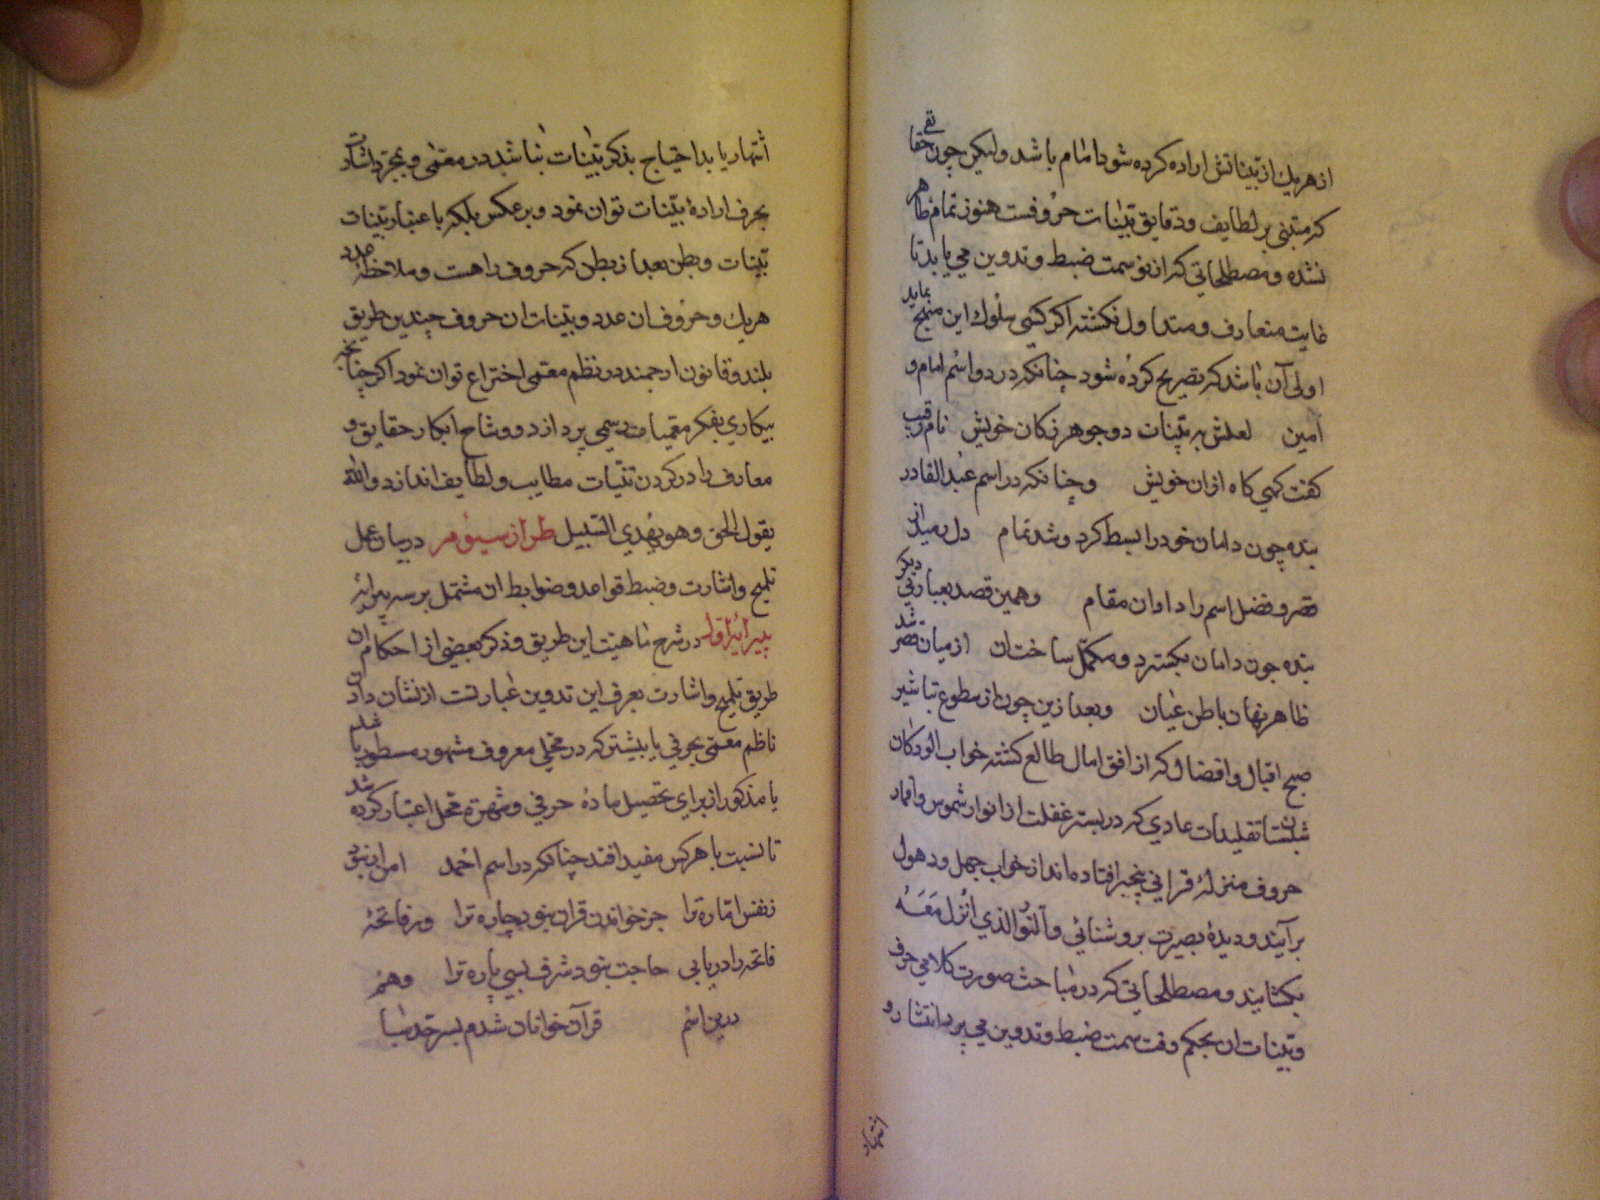 از هر یک از بیناتش اراده کرده شود امام باشد ولیکن چون حقایقی
که مبتنی بر لطایف و دقایق بینات حروفست هنوز تمام ظاهر
نشده و مصطلحاتی که ازین سمت ضبط و تدوین می یابد تا
غایت متعارف و متداول نکشته اکر کسی سلوک این منهج نماید
اولی آن باشد که تصریح کرده شود چنانکه در دو اسم امام و
امین لعلش به بینات دو جوهر ز کان خویش نام رقیب
کفت کهی کاه ازان خویش و چنانکه در اسم عبدالقادر
بنده چون دامان خود را بسط کرد و شد تمام دل ز میدان
قصر و فضل اسم را داد ان مقام و همین قصد بعبارتی دیکر
بنده چون دامان بکسترد و مکمل ساخت ان از میان قصر شد
ظاهر نهان باطن عیان و بعد ازین چون از سطوع تباشیر
صبح اقبال و افضال که از افق امال طالع کشته خواب الودکان
شبستان تقلیدات عادی که در بستر غفلت از انوار شموس و اقمار
حروف منزلهٔ قرانی بیخبر افتاده اند از خواب جهل و ذهول
برآیند و دیدهٔ بصیرت بروشنائی وَالنُّور الذی اُنْزِلَ مَعَهُ
بکشایند و مصطلحاتی که در مباحث صورت کلامی حرف
و بینات ان بحکم وقت سمت ضبط و تدوین می پذیرد انتشار و
اشتهار
اشتهار یابد احتیاج بذکر بینات نباشد در معمی و بمجرد اشارت
بحرف ارادهٔ بینات توان نمود و بر عکس بلکه باعتبار بینات
بینات و بطن بعد از بطن که حروف راهست و ملاحظهٔ عدد
هر یک و حروف ان عدد و بینات ان حروف چندین طریق
بلند و قانون ارجمند در نظم معمی اختراع توان نمود اکر چنانچه
بیکاری بفکر معمیات رسمی پردازد و وشاح ابکار حقایق و
معارف را در کردن بنیات مطایب و لطایف اندازد والله
یقول الحق و هو یهدی السبیل طراز سیوم در بیان عمل
تلمیح و اشارت و ضبط قواعد و ضوابط ان مشتمل بر سه پیرایه
پیرایهٔ اول در شرح ماهیت این طریق و ذکر بعضی از احکام ان
طریق تلمیح و اشارت بعرف این تدوین عبارتست از نشان دادن
ناظم معمی بحرفی یا بیشتر که در محلی معروف مشهور مسطور باشد
یا مذکور از برای تحصیل مادهٔ حرفی و شهرة محل اعتبار کرده شد
تا نسبت با هر کس مفید افتد چنانکه در اسم احمد امر از نبود
ز نفس اماره ترا جز خواندن قران نبود چاره ترا ور فاتحهٔ
فاتحه را دریابی حاجت نبود شرف بسی پاره ترا و هم
درین اسم قرآن خوانان شدم بسر حد سبا